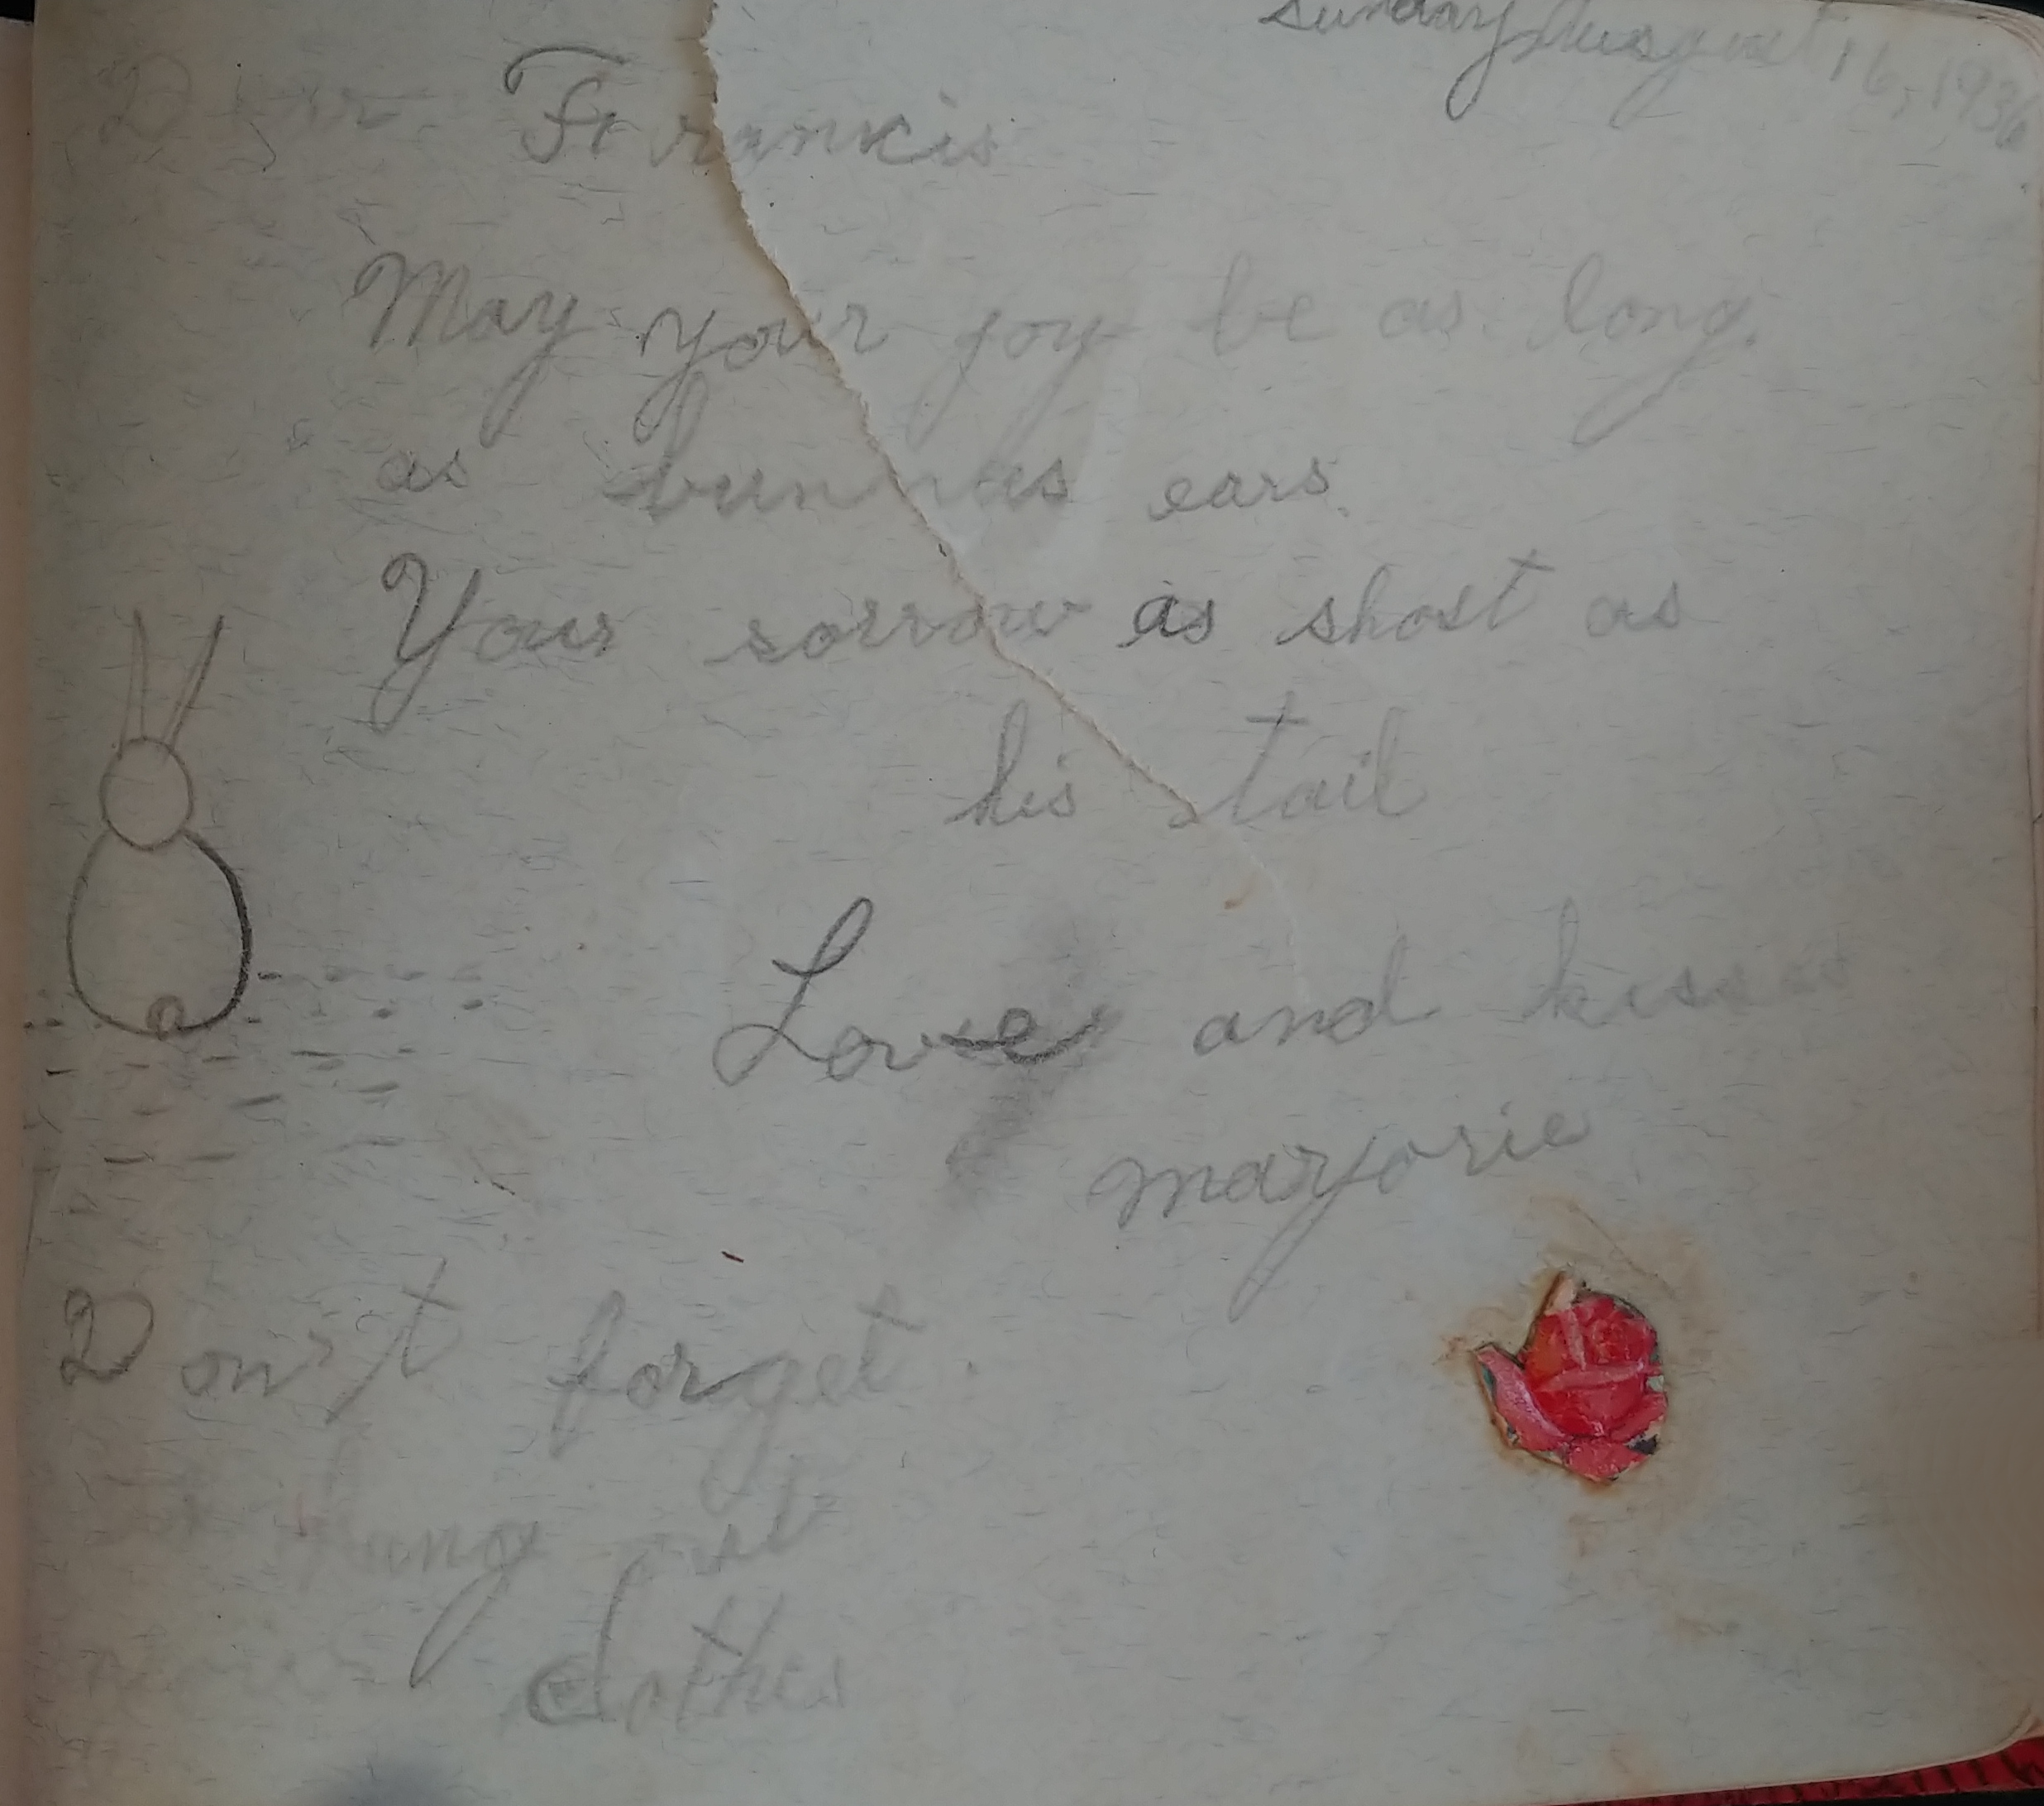 Sunday, August 16, 1936
Dear Francis
May your joy be as long
as bunnas ears.
Your sorrow as short as
his tail
Love and kisses
Marjorie
Don't forget
hang out
your clothes